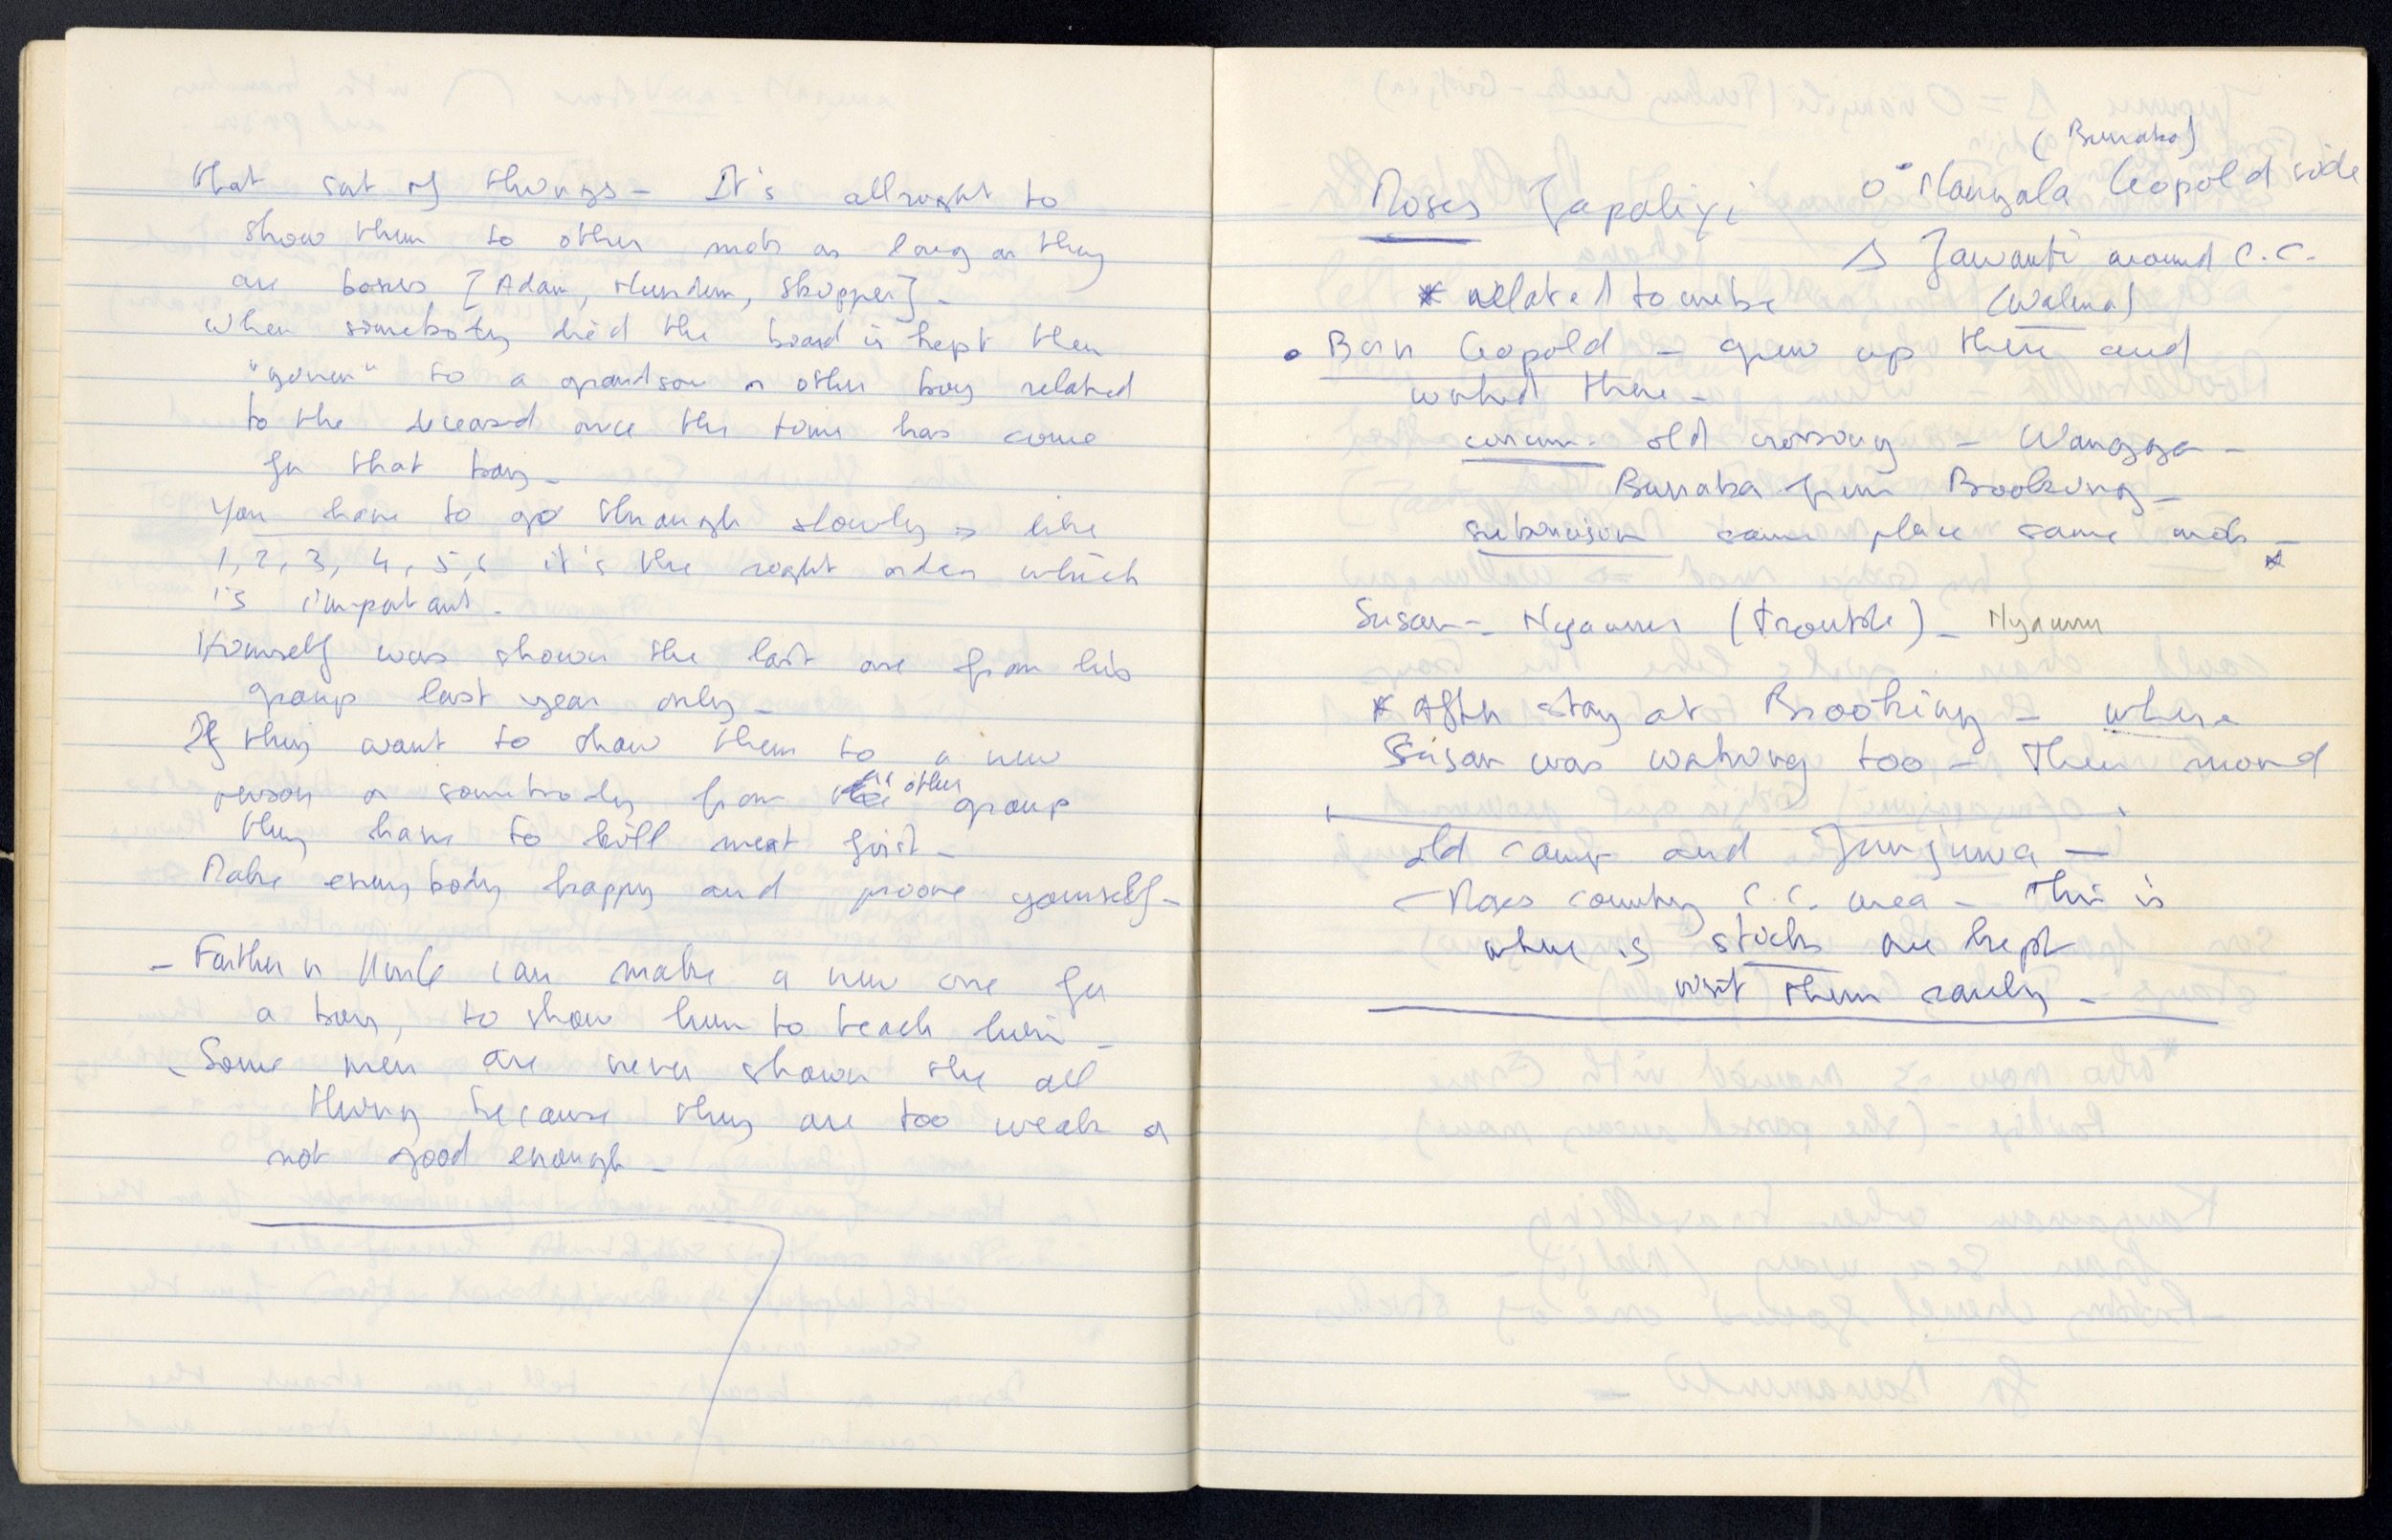 that sort of things - It's allright to
show them to other mob as long as they
are bosses [Adam, , Skipper] -
When somebody died the board is kept then
"given" to a grandson or other boy related
to the deceased once the time has come
for that boy -
You have to go through slowly → like
1, 2, 3, 4, 5, 6 it's the right order which
is important -
Himself was shown the last one from his
group last year only -
If they want to show them to a new
person or somebody from an other group
they have to kill meat first -
Make everybody happy and proove yourself -
- Father or Uncle can make a new one for
a boy, to show him to teach him -
- Some men are never shown the all
thing because they are too weak or
not good enough -
(Burraba)
Moses Japaliyi O Nangala Leopold side
Δ Jawanti around C.C.
* related to (Walma)
• Born Leopold - grew up there and
worked there -
circum. old crossing - Wangga -
Burraba from Brooking -
subincision same place same mob - *
Susan - (trouble) -
* After stay at Brooking - where
Susan was working too - Then moved
old camp and Junjuwa -
- Moses country C.C. area - This is
where is sticks are kept
visit them rarely -